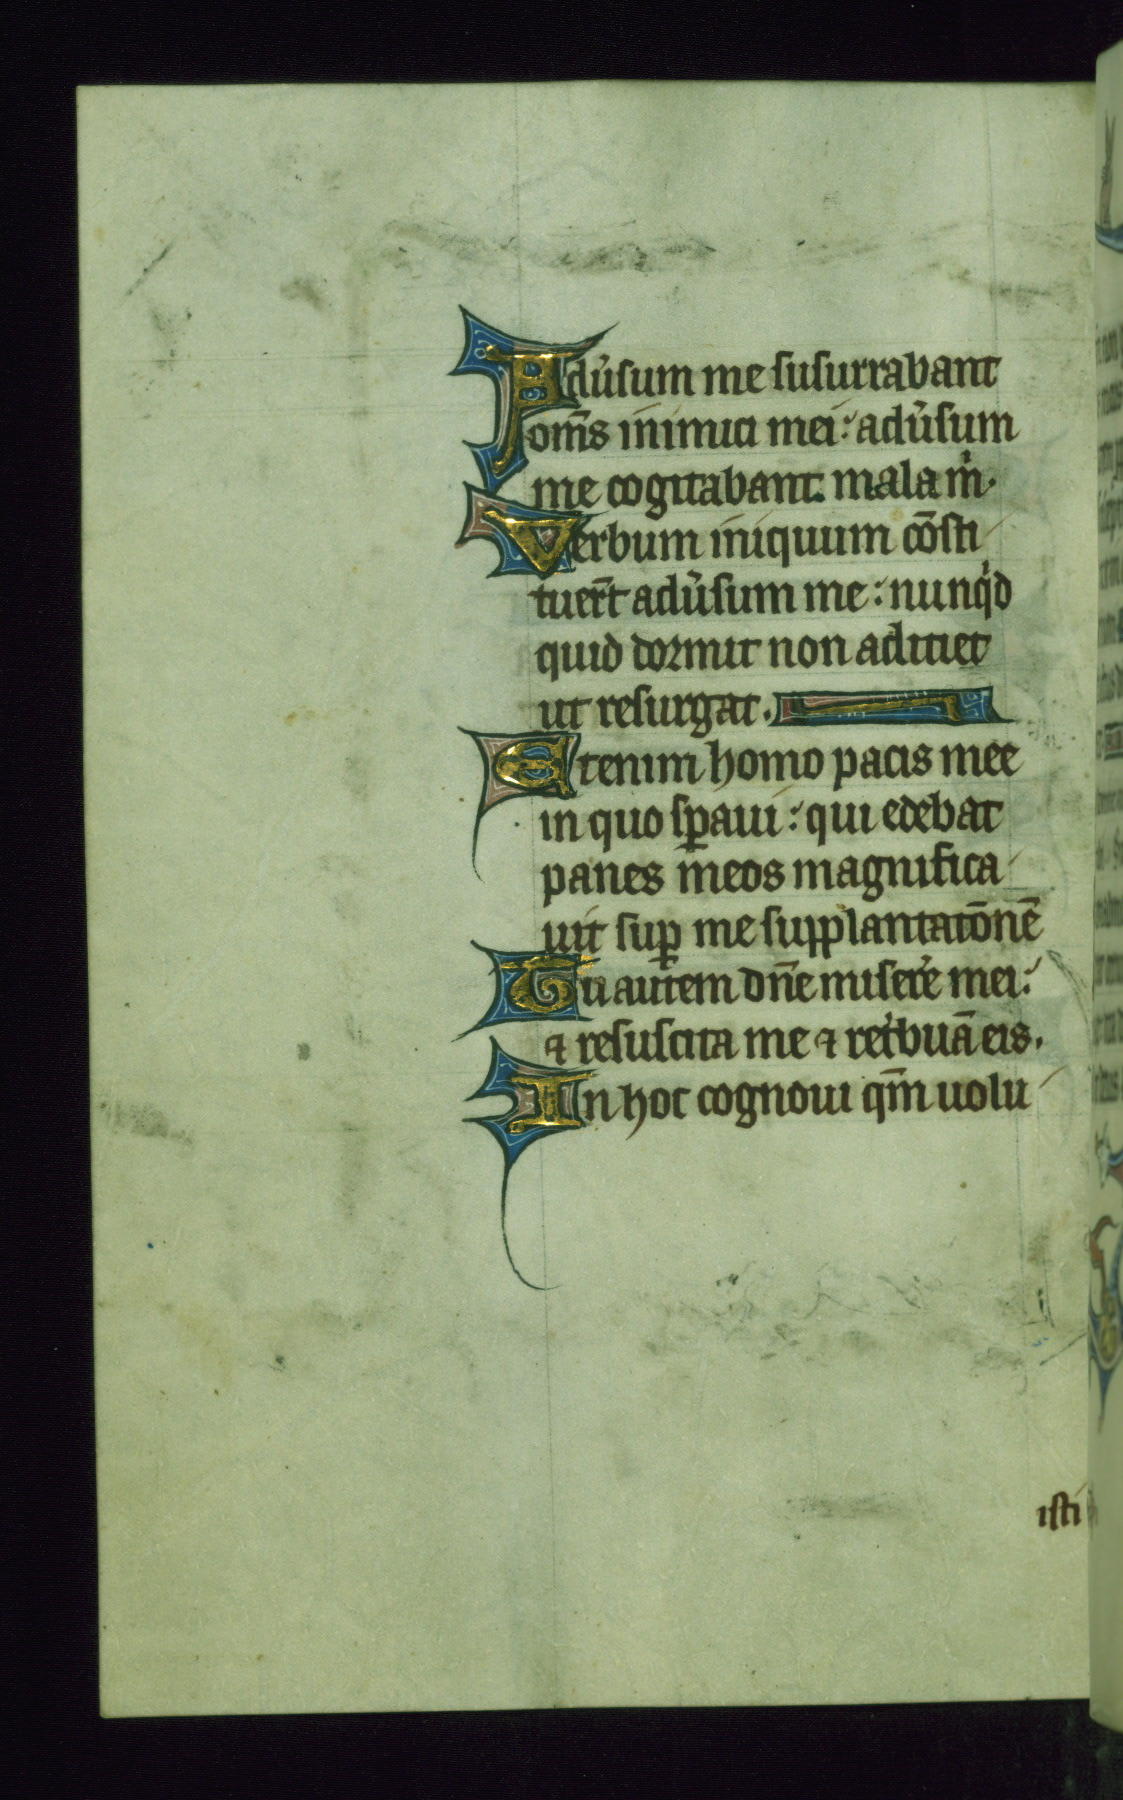 Adu̾sum me susurrabant
om̄s inimici mei: adu̾sum
me cogitabant mala m̍.
Verbum iniquum cōsti
tuer̄t adu̾sum me: nunq̍d
quid dormit non adiciet
ut resurgat.
Etenim homo pacis mee
in quo sꝑaui: qui edebat
panes meos magnifica
uit suꝑ me supplantatōnē
Tu autem dn̄e misere̾ mei:
⁊ resuscita me ⁊ ret̍buā eis.
In hoc cognoui qm̄ uolu
isti